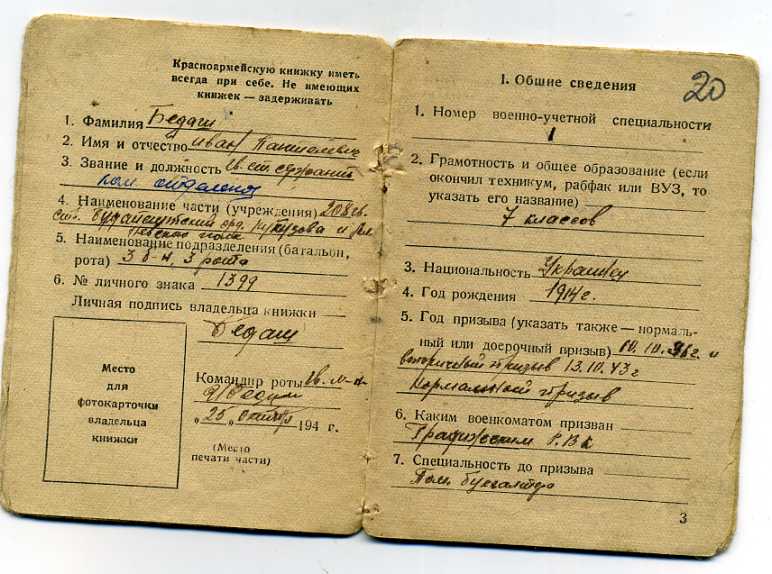 Красноармейскую книжку иметь
всегда при себе. Не имеющих
книжек — задерживать
1. Фамилия Бедаш
2. Имя и отчество Иван
3. Звание и должность гв. ст. сержант
ком. отделения
4. Наименование части (учреждения) 208 гв.
стр. Будапештский орд. Кутузова и
Невского полк
5. Наименование подразделения (батальон,
рота) 3 б-н, 3 рота
6. № личного знака 1399
Личная подпись владельца книжки
Бедаш
Место
для
фотокарточки
владельца
книжки
Командир роты гв.
„25„ октября 194 г.
(Место
печати части)
20
I. Общие сведения
1. Номер военно-учетной специальности
1
2. Грамотность и общее образование (если
окончил техникум, рабфак или ВУЗ, то
указать его название)
7 классов
3. Национальность Украинец
4. Год рождения 1914 г.
5. Год призыва (указать также — нормаль-
ный или досрочный призыв) 10.10.36 г. и
вторичный призыв 13.10.43 г
нормальный призыв
6. Каким военкоматом призван
Градижским Р.В.К
7. Специальность до призыва
Пом. бухгалтера
3